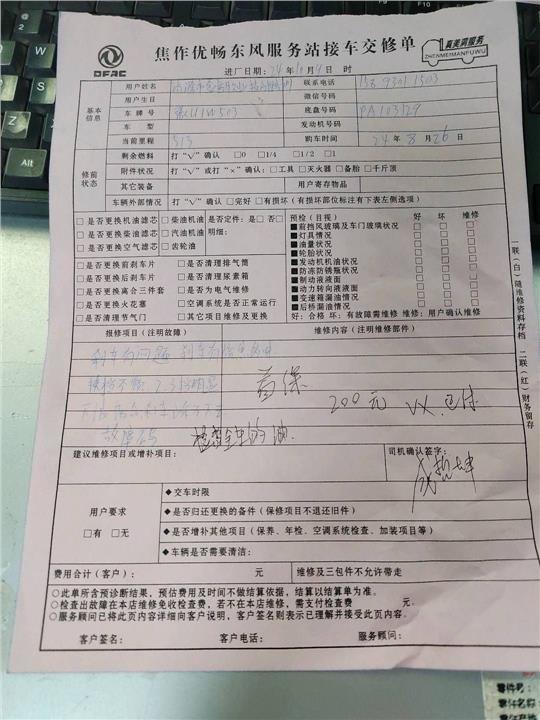 DFAC
焦作优畅东风服务站接车交修单
真美满服务
ZHENMEIMANFUWU
进厂日期:24年10月9日 时
基本信息
用户姓名
联系电话
用户生日 微信号码
车牌号 底盘号码 PA103129
车型 发动机号码
当前里程 513 购车时间 24年8月26日
修前状态
剩余燃料 打“√”确认 □0 □1/4 □1/2 □1
附件状况 打“√”或打“×”确认:□工具 □灭火器 □备胎 □千斤顶
其它装备 用户寄存物品
车辆外部情况 打“√”确认 □完好 □有损坏(有损坏部位标注有下表左侧选项)
□是否更换机油滤芯 □柴油机油 是否定件:是□ 否□
□是否更换柴油滤芯 □汽油机油 明细:
□是否更换空气滤芯 □齿轮油
□是否更换前刹车片 □是否清理排气筒
□是否更换后刹车片 □是否清理尿素箱
□是否更换离合三件套 □是否为电气维修
□是否更换火花塞 □空调系统是否正常运行
□是否清理节气门 □其它项目维修及更换
预检(目视) 好 坏 维修
■前挡风玻璃及车门玻璃状况 □ □ □
■灯具情况 □ □ □
■油量状况 □ □ □
■轮胎状况 □ □ □
■发动机机油状况 □ □ □
■防冻防锈瓶状况 □ □ □
■制动液液面 □ □ □
■动力转向液液面 □ □ □
■变速箱漏油情况 □ □ □
■后桥漏油情况 □ □ □
好:合格 坏:有故障需维修 维修:用户确认维修
报修项目(注明故障) 维修内容(注明维修部件)
刹车有问题
故障码
首保
200元 VX.已付
检查全车的油.
建议维修项目或增补项目: 司机确认签字:
用户要求
□有 □无
◆交车时限
◆是否归还更换的备件(保修项目不退还旧件)
◆是否增补其他项目(保养、年检、空调系统检查、加装项目等)
◆车辆是否需要清洁:
费用合计(客户): 元 维修及三包件不允许带走
○此单所含预诊断结果,预估费用及时间不做结算依据,结算以结算单为准。
○检查出故障在本店维修免收检查费,若不在本店维修,需支付检查费 元。
○服务顾问已将此页内容详细向客户说明,客户签名则表示已理解并接受此页内容。
客户签名: 客户电话: 服务顾问:
一联(白)随维修资料存档 二联(红)财务留存
零件号:
零件名称:
Alt